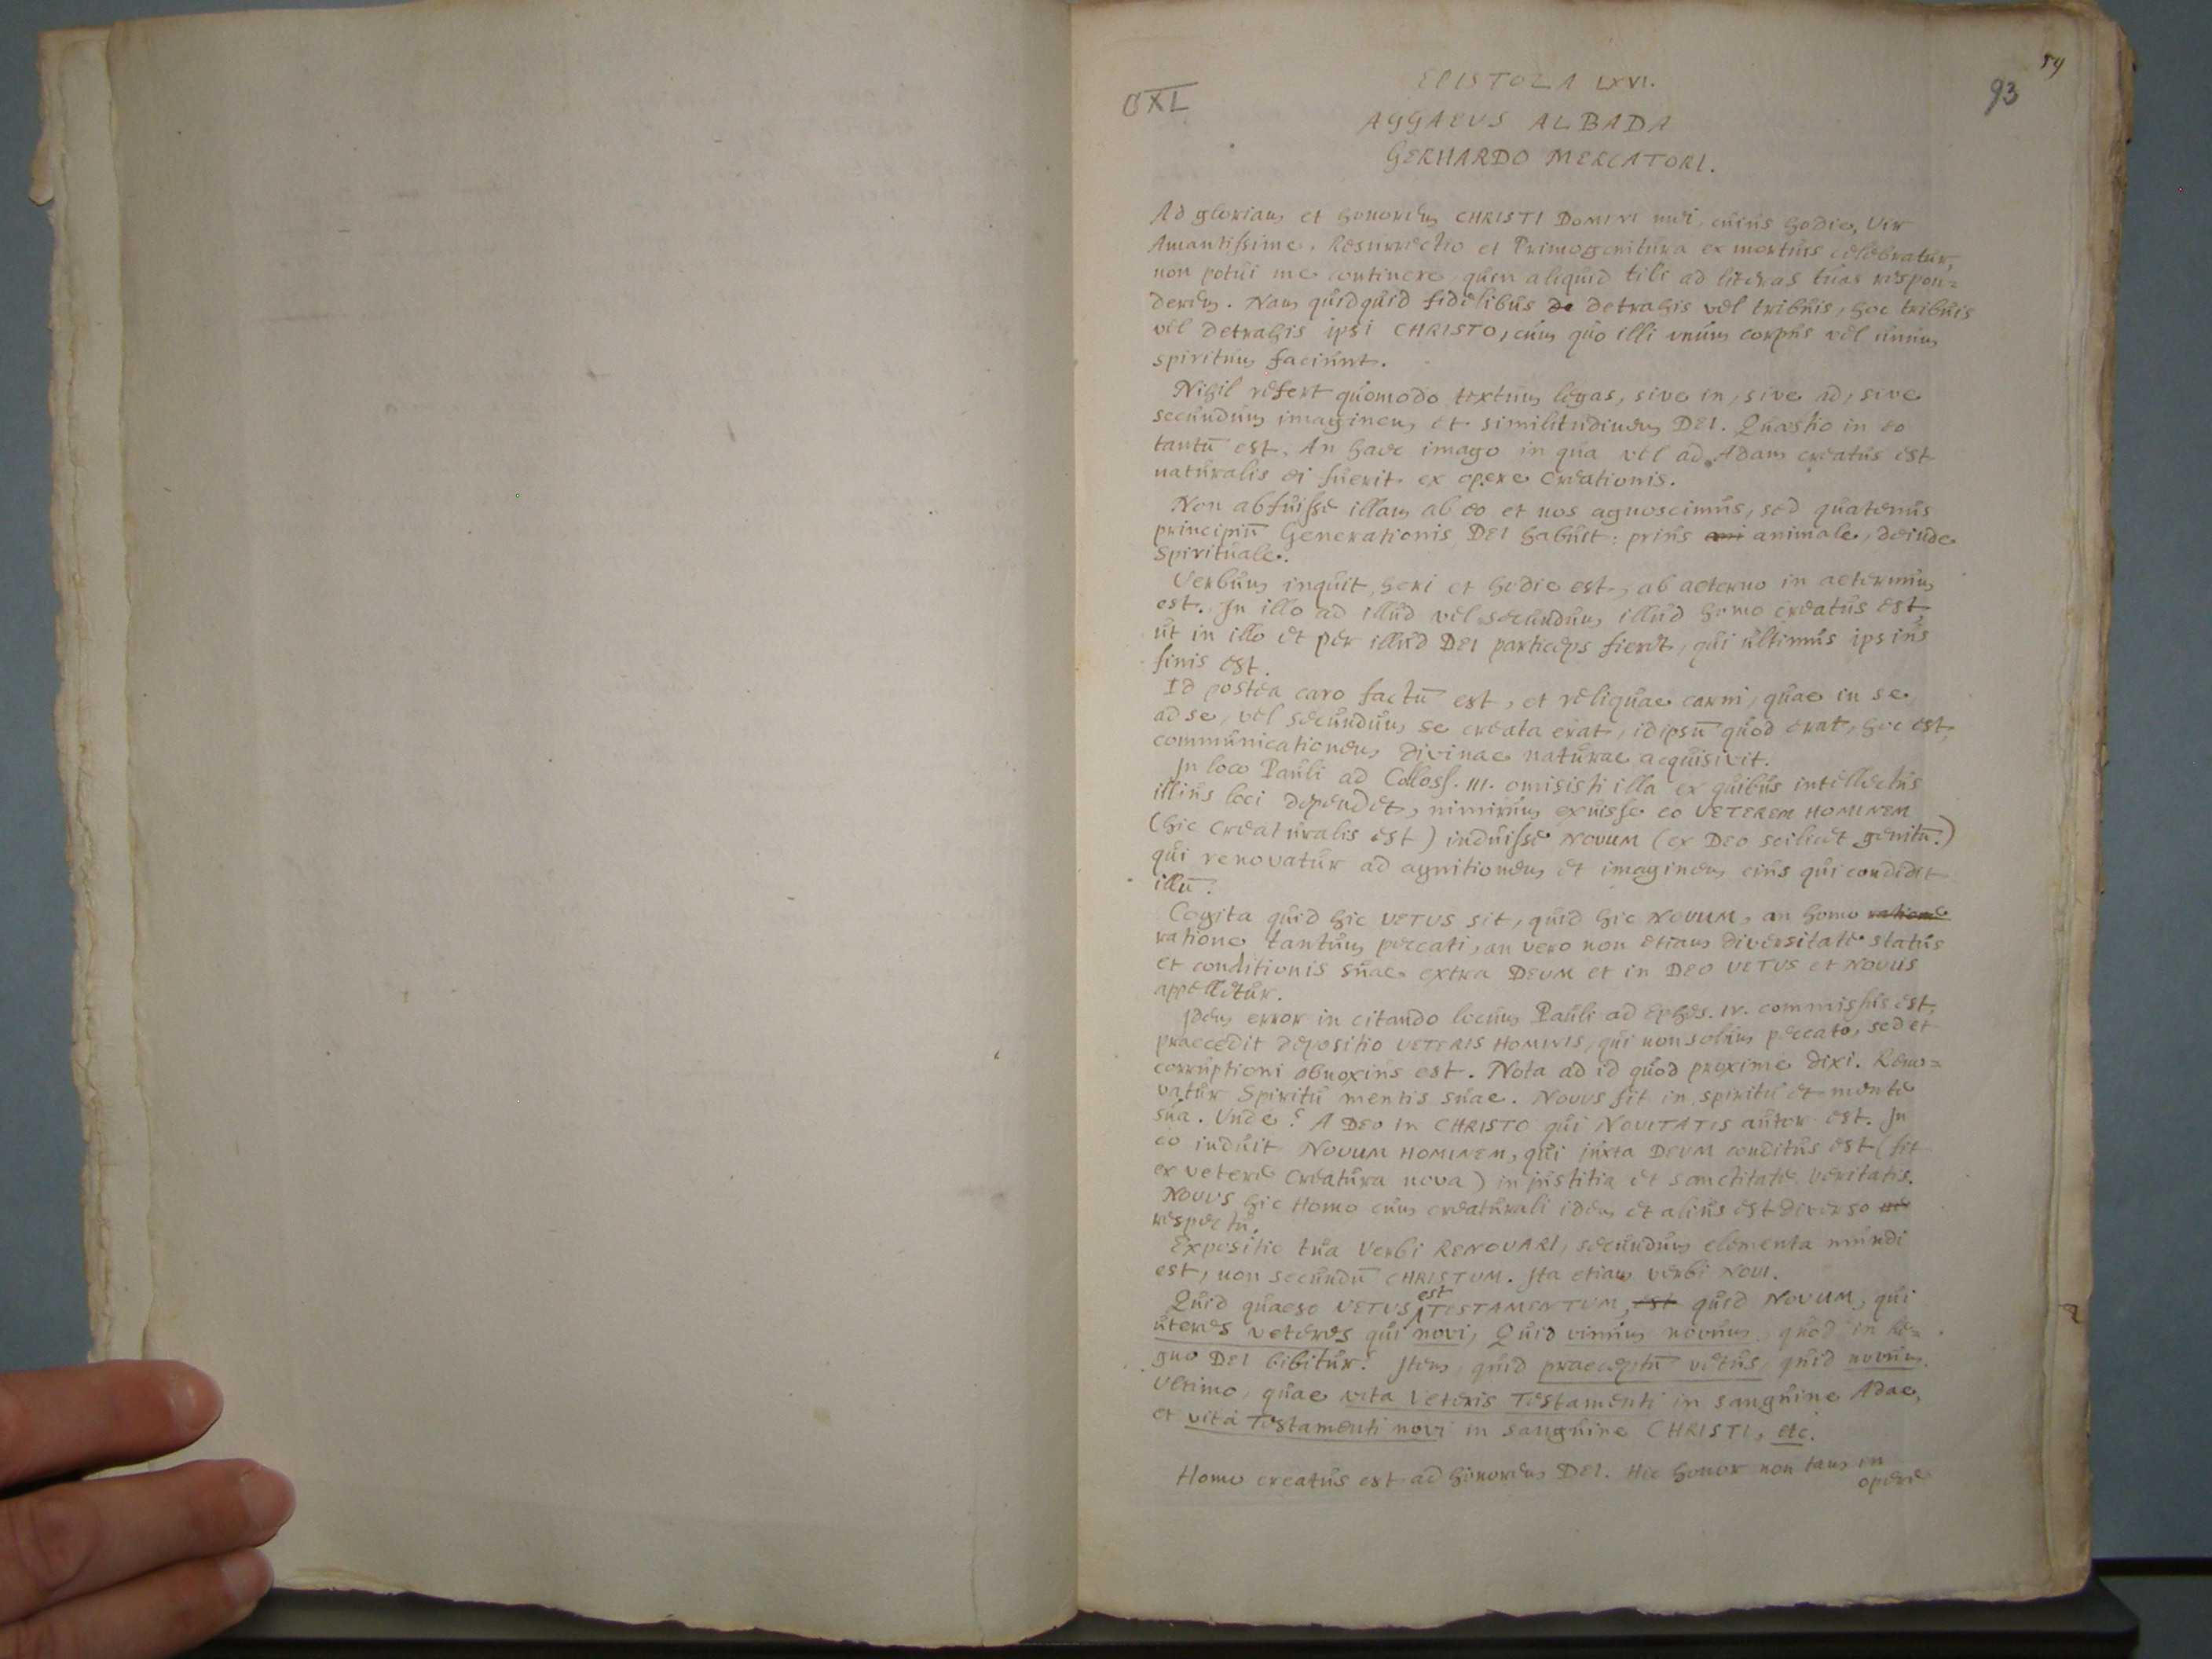 59
93
CXL
EPISTOLA LXVI.
AGGAEUS ALBADA
GERHARDO MERCATORI.
Ad gloriam et honorem CHRISTI DOMINI mei, cuius hodie, Vir
Amantissime, Resurrectio et Primogenitura ex mortuis celebratur,
non potui me continere quin aliquid tibi ad literas tuas respon=
derem. Nam quidquid fidelibus de detrahis vel tribuis, hoc tribuis
vel detrahis ipsi CHRISTO, cum quo illi unum corpus vel unum
spiritum faciunt.
Nihil refert quomodo textum legas, sive in, sive ad, sive
secundum imaginem et similitudinem DEI. Quaestio in eo
tantū est, An haec imago in qua vel ad Adam creatus est
naturalis ei fuerit ex opere Creationis.
Non abfuisse illam ab eo et nos agnoscimus, sed quatenus
principiū Generationis DEI habuit: prius ani animale, deinde
Spirituale.
Verbum inquit, heri et hodie est, ab aeterno in aeternum
est. In illo ad illud vel secundum illud homo creatus est,
ut in illo et per illud DEI particeps fieret, qui ultimus ipsius
finis est.
Id postea caro factū est, et reliquae carni, quae in se
ad se, vel secundum se creata erat, id ipsū quod erat, hoc est,
communicationem divinae naturae acquisivit.
In loco Pauli ad Coloss. III. omisisti illa ex quibus intellectus
illius loci dependet, nimirum exuisse eo VETEREM HOMINEM
(hic creaturalis est) induisse NOVUM (ex DEO scilicet genitū.)
qui renovatur ad agnitionem et imaginem eius qui condidit
illū.
Cogita quid hic VETUS sit, quid hic NOVUM, an homo ratione
ratione tantum peccati, an vero non etiam diversitate status
et conditionis suae extra DEUM et in DEO VETUS et NOVUS
appelletur.
Idem error in citando locum Pauli ad Ephes. IV. commissus est,
praecedit depositio VETERIS HOMINIS, qui non solum peccato, sed et
corruptioni obnoxius est. Nota ad id quod proxime dixi. Reno=
vatur Spiritu mentis suae. Novus fit in spiritu et mente
sua. Unde? A DEO in CHRISTO qui NOVITATIS autor est. In
eo induit NOVUM HOMINEM, qui juxta DEUM conditus est (fit
ex vetere creatura nova) in justitia et sanctitate veritatis.
Novus hic Homo cum creaturali idem et alius est diverso re
respectu.
Expositio tua Verbi RENOVARI, secundum elementa mundi
est, non secundū CHRISTUM. Ita etiam verbi NOVI.
est
Quid quaeso VETUS TESTAMENTUM, est quid NOVUM, qui
uteres veteres qui novi, Quid vinum novum, quod in Re=
gno DEI bibitur? Item quid praeceptū vetus, quid novum.
Ultimo, quae vita Veteris Testamenti in sanguine Adae,
et vita Testamenti novi in sanguine CHRISTI, etc.
Homo creatus est ad honorem DEI. Hic honor non tam in
opere